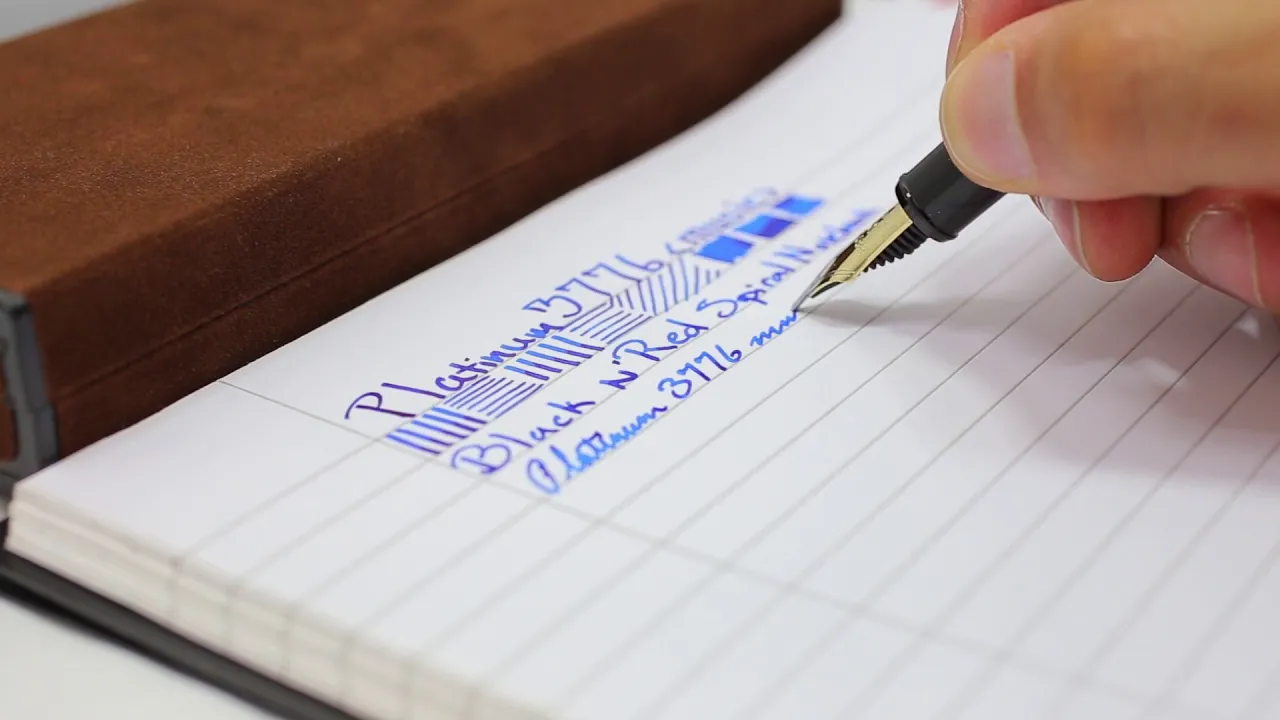 Platinum 3776
Black n' Red Spiral Notebook
Platinum 3776 mm